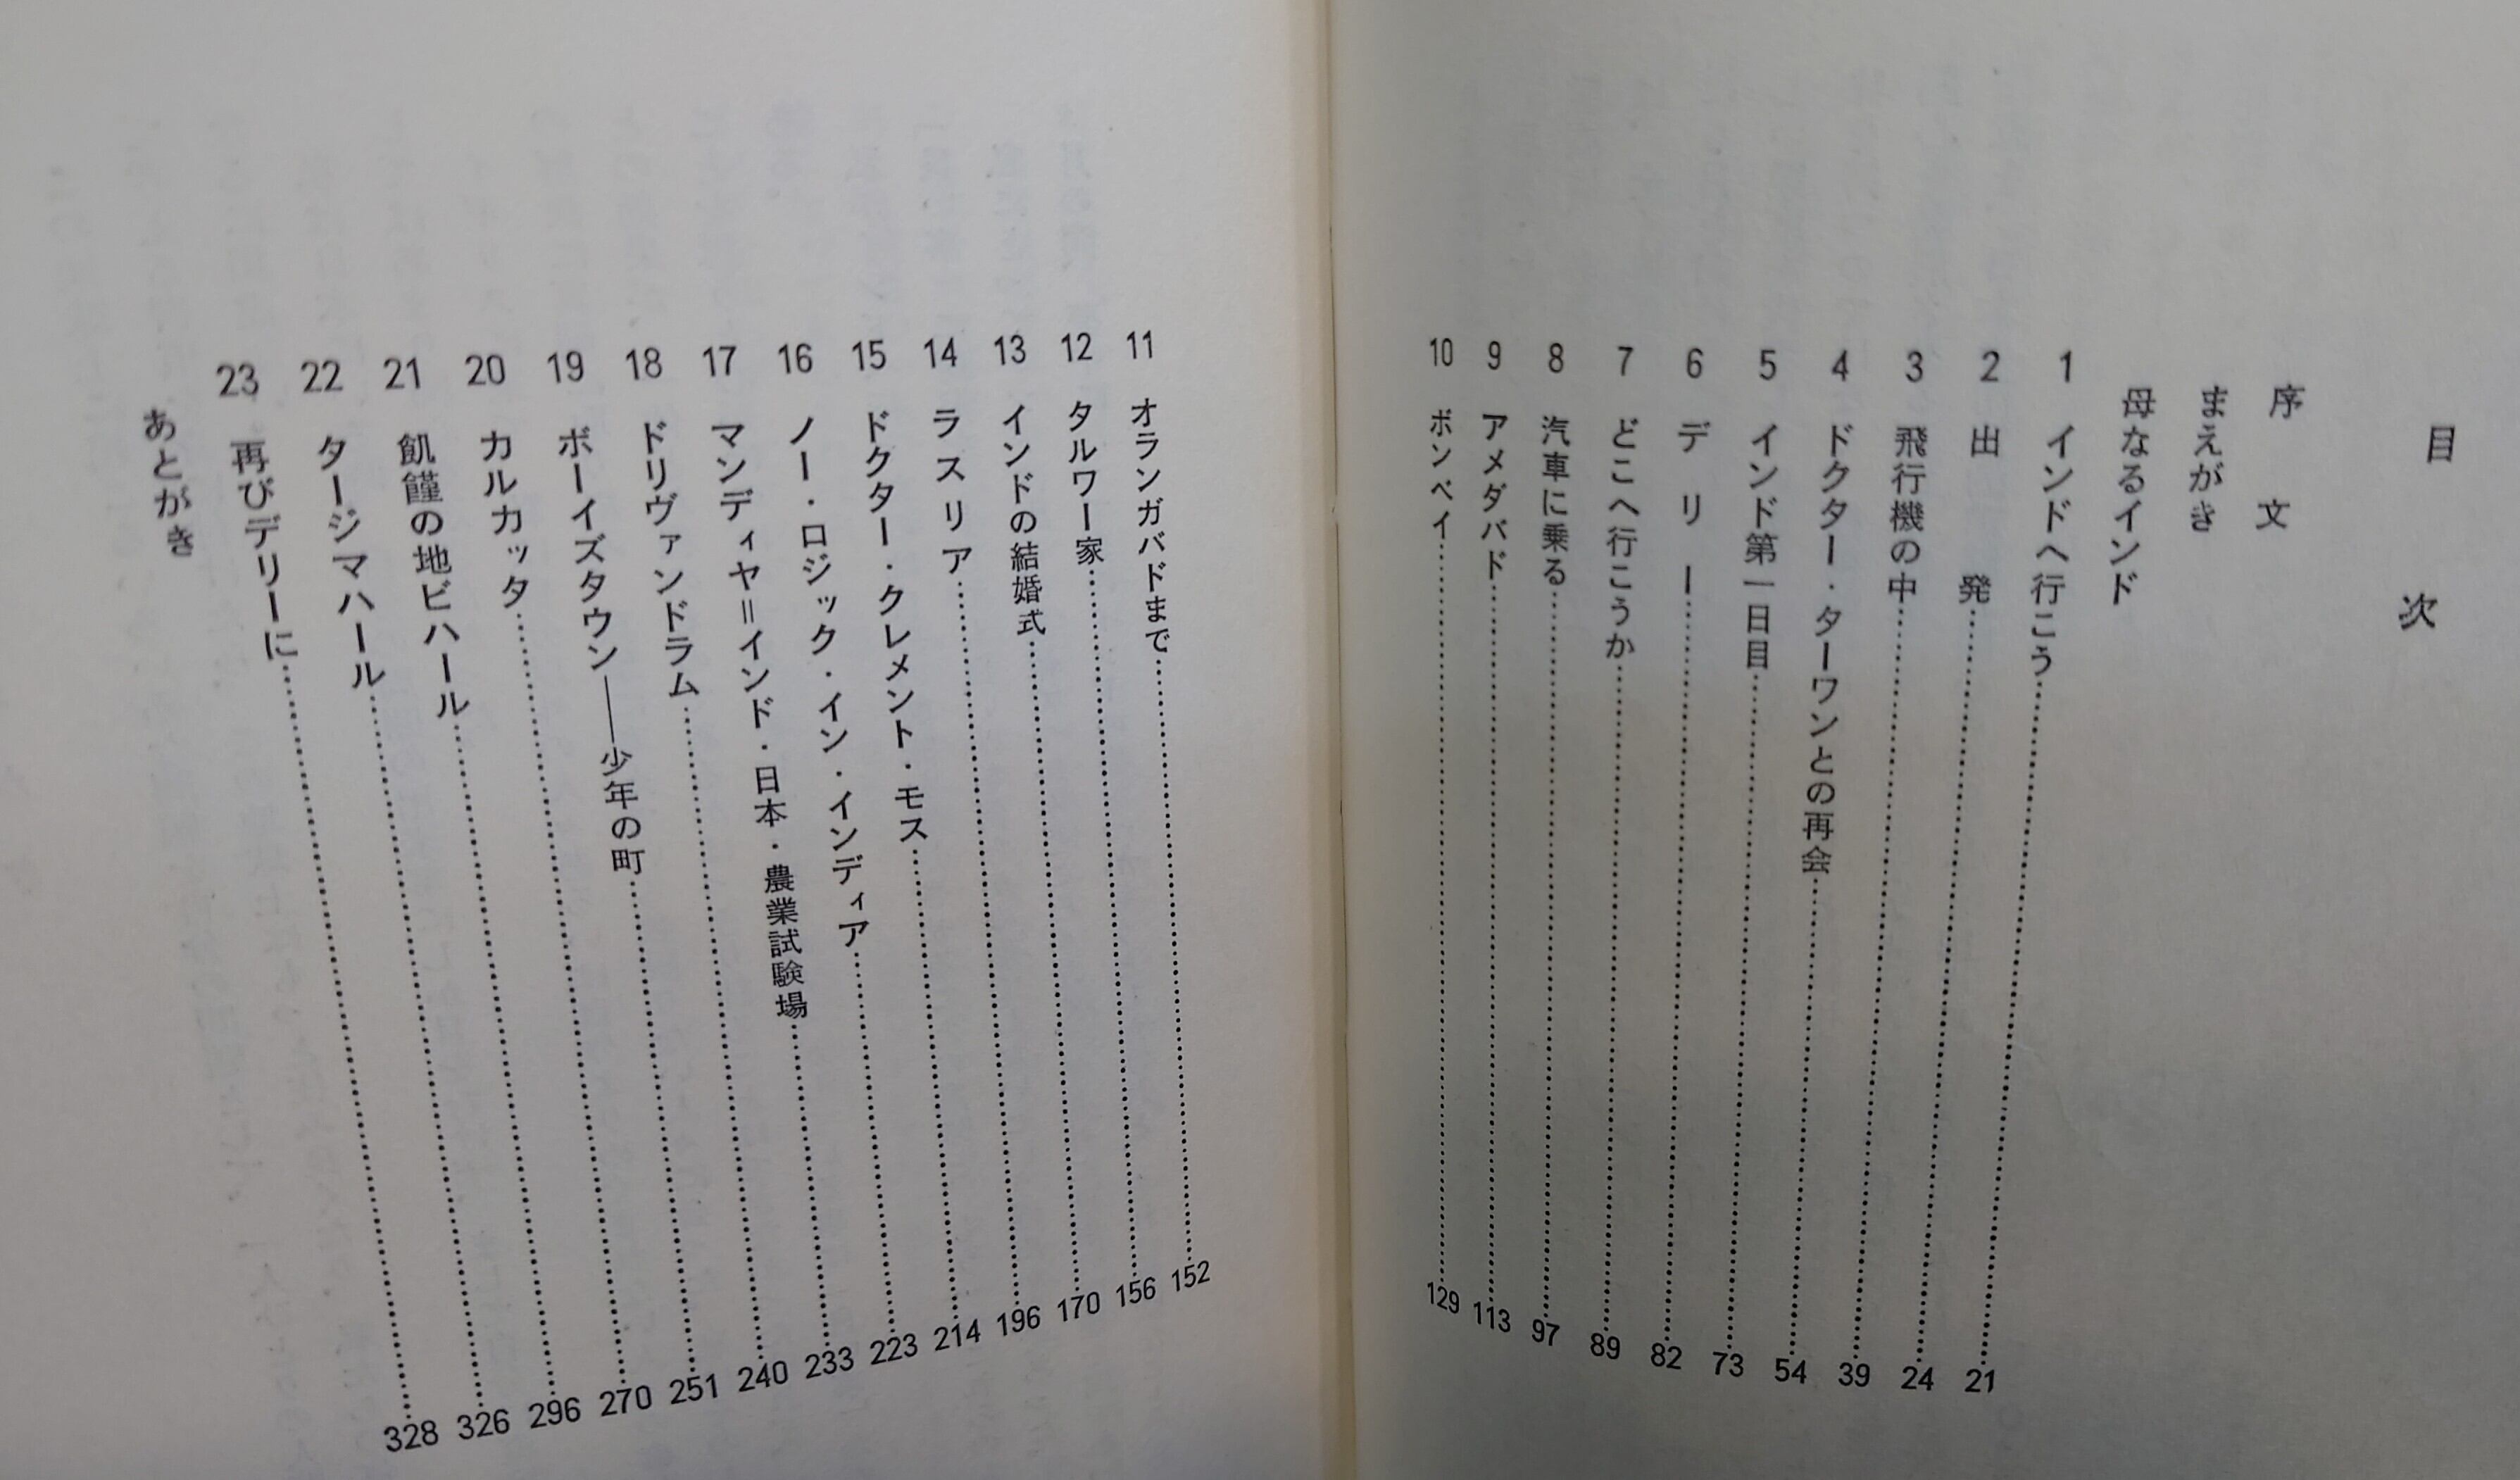 目次
序文
まえがき
母なるインド
1 インドへ行こう……21
2 出発……24
3 飛行機の中……39
4 ドクター・ターワンとの再会……54
5 インド第一日目……73
6 デリー……82
7 どこへ行こうか……89
8 汽車に乗る……97
9 アメダバド……113
10 ボンベイ……129
11 オランガバドまで……152
12 タルワー家……156
13 インドの結婚式……170
14 ラスリア……196
15 ドクター・クレメント・モス……214
16 ノー・ロジック・イン・インディア……223
17 マンディヤ＝インド・日本・農業試験場……233
18 ドリヴァンドラム……240
19 ボーイズタウン――少年の町……251
20 カルカッタ……270
21 飢饉の地ビハール……296
22 タージマハール……326
23 再びデリーに……328
あとがき